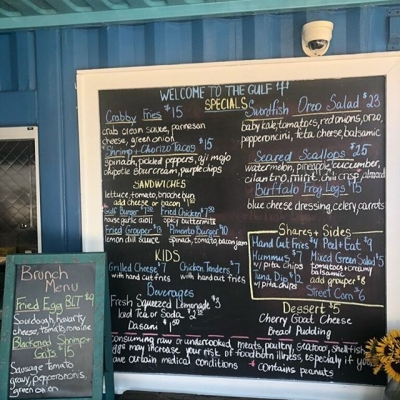 WELCOME TO THE GULF !!
SPECIALS
Crabby Fries $15
crab cream sauce, parmesan
cheese, green onion
*Shrimp + Chorizo Tacos $15
spinach, pickled peppers, aji mojo
chipotle sour cream, purple chips
SANDWICHES
lettuce, tomato, brioche bun
add cheese or bacon
Gulf Burger
house garlic aioli
Fried Chicken
spicy buttermilk
Fried Grouper $13
lemon dill sauce
Pimento Burger $10
spinach, tomato, bacon jam
KIDS
Grilled Cheese $7
with hand cut fries
Chicken Tenders $7
with hand cut fries
Beverages
Fresh Squeezed Lemonade $3
Iced Tea or Soda
Dasani $1.50
Swordfish Orzo Salad $23
baby kale, tomatoes, red onions, orzo,
pepperoncini, feta cheese, balsamic
Seared Scallops $25
watermelon, pineapple, cucumber,
cilantro, mint, chili crisp, almond
Buffalo Frog Legs $15
blue cheese dressing, celery, carrots
Shares + Sides
Hand Cut Fries $4
Peel + Eat $9
Hummus $7
w/ pita chips
Mixed Green Salad $5
tomatoes + creamy
balsamic
Tuna Dip $8
w/ pita chips
add grouper $6
Street Corn $6
Dessert $5
Cherry Goat Cheese
Bread Pudding
Consuming raw or undercooked, meats, poultry, seafood, shellfish
eggs may increase your risk of foodborn illness, especially if you
have certain medical conditions * contains peanuts
Brunch
Menu
Fried Egg BLT $9
Sourdough, havarty
cheese, tomato, romaine
Blackened Shrimp +
Grits $15
Sausage Tomato
gravy, pepperoncinis,
green onion